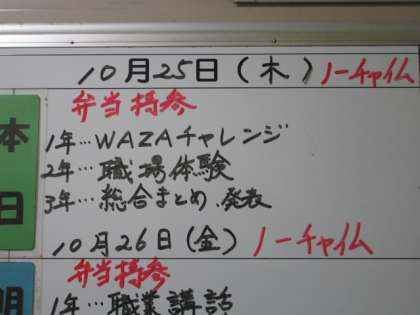 10月25日(木) ノーチャイム
弁当持参
本日
1年…WAZAチャレンジ
2年…職場体験
3年…総合まとめ、発表
10月26日(金) ノーチャイム
弁当持参
明
1年…職業講話